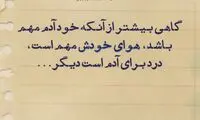 گاهی بیشتر از آنکه خود آدم مهم
باشد، هوای خودش مهم است،
درد برای آدم است دیگر...